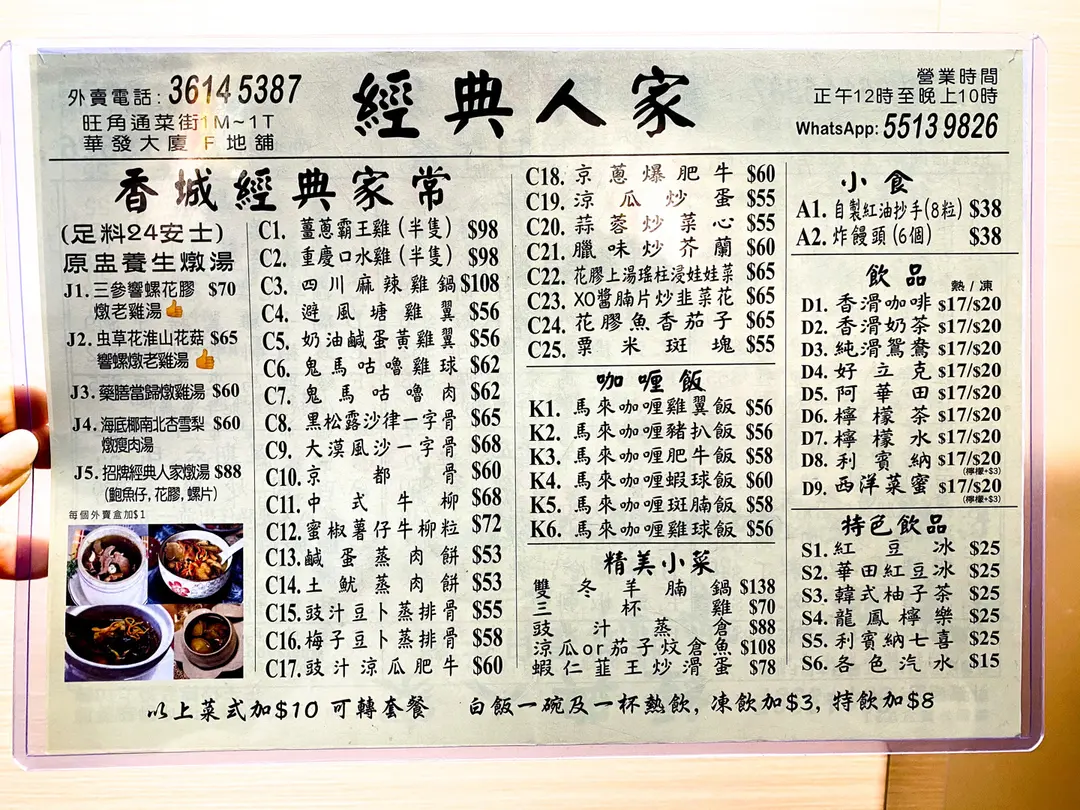 外賣電話: 3614 5387
旺角通菜街1M~1T
華發大廈 F 地舖
經典人家
營業時間
正午12時至晚上10時
WhatsApp: 5513 9826
香城經典家常
(足料24安士)
原盅養生燉湯
J1. 三參響螺花膠 $70
燉老雞湯👍
J2. 虫草花淮山花菇 $65
響螺燉老雞湯👍
J3. 藥膳當歸燉雞湯 $60
J4. 海底椰南北杏雪梨 $60
燉瘦肉湯
J5. 招牌經典人家燉湯 $88
(鮑魚仔, 花膠, 螺片)
每個外賣盒加$1
C1. 薑蔥霸王雞 (半隻) $98
C2. 重慶口水雞 (半隻) $98
C3. 四川麻辣雞鍋 $108
C4. 避風塘雞翼 $56
C5. 奶油鹹蛋黃雞翼 $56
C6. 鬼馬咕嚕雞球 $62
C7. 鬼馬咕嚕肉 $62
C8. 黑松露沙律一字骨 $65
C9. 大漠風沙一字骨 $68
C10. 京都骨 $60
C11. 中式牛柳 $68
C12. 蜜椒薯仔牛柳粒 $72
C13. 鹹蛋蒸肉餅 $53
C14. 土魷蒸肉餅 $53
C15. 豉汁豆卜蒸排骨 $55
C16. 梅子豆卜蒸排骨 $58
C17. 豉汁涼瓜肥牛 $60
C18. 京蔥爆肥牛 $60
C19. 涼瓜炒蛋 $55
C20. 蒜蓉炒菜心 $55
C21. 臘味炒芥蘭 $60
C22. 花膠上湯瑤柱浸娃娃菜 $65
C23. XO醬腩片炒韭菜花 $65
C24. 花膠魚香茄子 $65
C25. 粟米斑塊 $55
咖喱飯
K1. 馬來咖喱雞翼飯 $56
K2. 馬來咖喱豬扒飯 $56
K3. 馬來咖喱肥牛飯 $58
K4. 馬來咖喱蝦球飯 $60
K5. 馬來咖喱斑腩飯 $58
K6. 馬來咖喱雞球飯 $56
精美小菜
雙冬羊腩鍋 $138
三杯雞 $70
豉汁蒸倉 $88
涼瓜or茄子炆倉魚 $108
蝦仁韮王炒滑蛋 $78
小食
A1. 自製紅油抄手(8粒) $38
A2. 炸饅頭 (6個) $38
飲品
熱 / 凍
D1. 香滑咖啡 $17/$20
D2. 香滑奶茶 $17/$20
D3. 純滑鴛鴦 $17/$20
D4. 好立克 $17/$20
D5. 阿華田 $17/$20
D6. 檸檬茶 $17/$20
D7. 檸檬水 $17/$20
D8. 利賓納 $17/$20
(檸檬+$3)
D9. 西洋菜蜜 $17/$20
(檸檬+$3)
特色飲品
S1. 紅豆冰 $25
S2. 華田紅豆冰 $25
S3. 韓式柚子茶 $25
S4. 龍鳳檸樂 $25
S5. 利賓納七喜 $25
S6. 各色汽水 $15
以上菜式加$10 可轉套餐 白飯一碗及一杯熱飲, 凍飲加$3, 特飲加$8